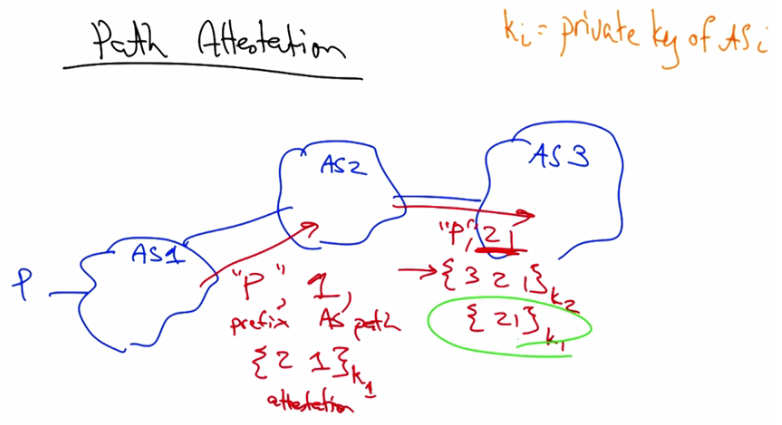 Path Attestation
ki = private key of ASi
AS1
AS2
AS3
P
"P", 1,
prefix AS path
{2 1}k1
attestation
"P", 21
→{3 2 1}k2
{21}k1